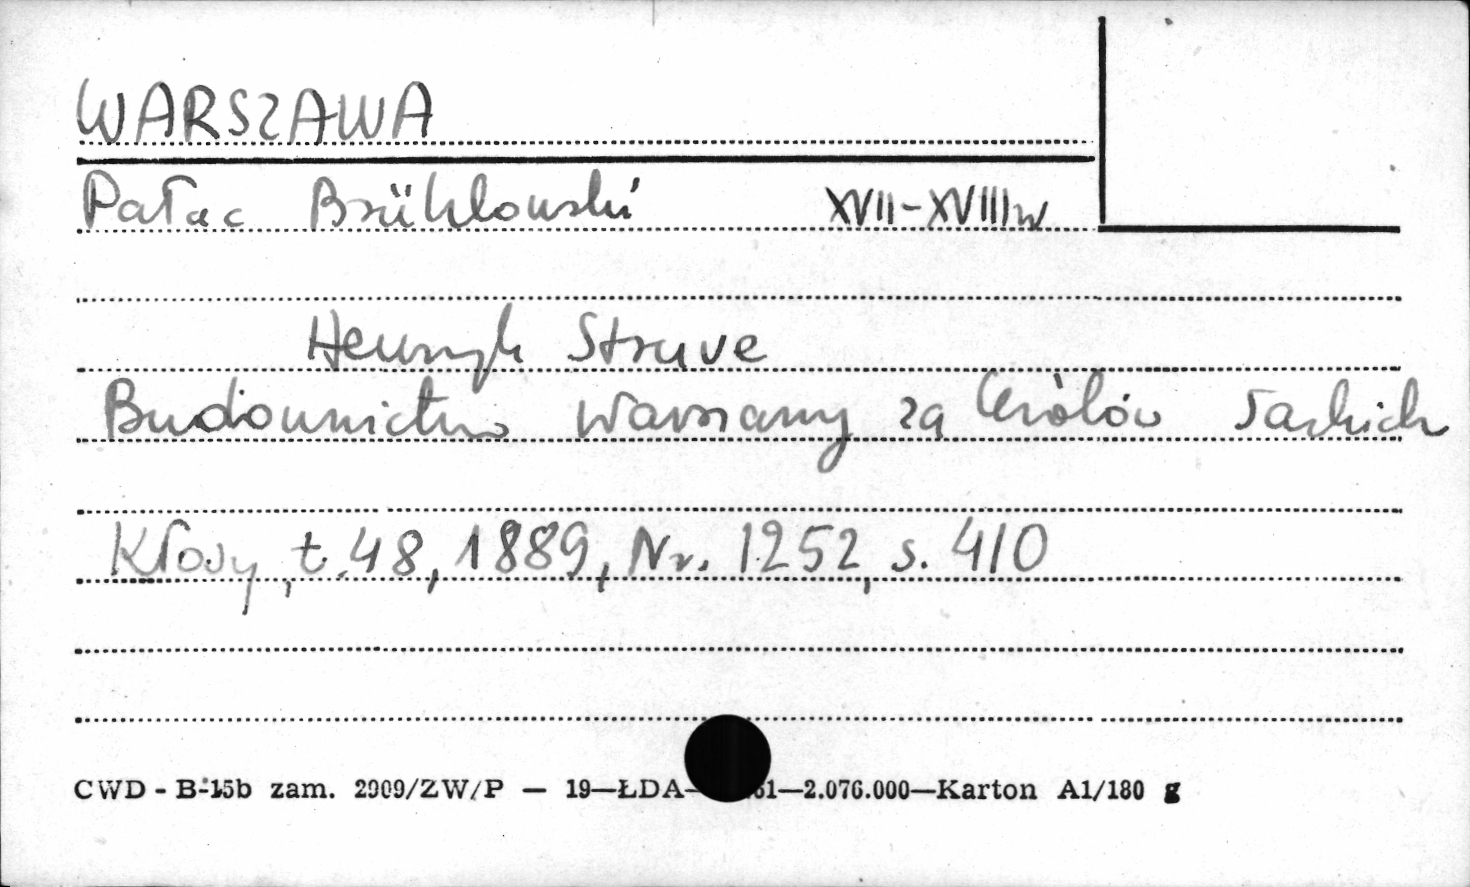 WARSZAWA
Pałac Brühlowski XVII-XVIII w
Henryk Struve
Budownictwo Warszawy za królów saskich
Kłosy, t. 48, 1889, Nr. 1252, s. 410
CWD - B-15b zam. 2909/ZW/P — 19—ŁDA— 61—2.076.000—Karton A1/180 g